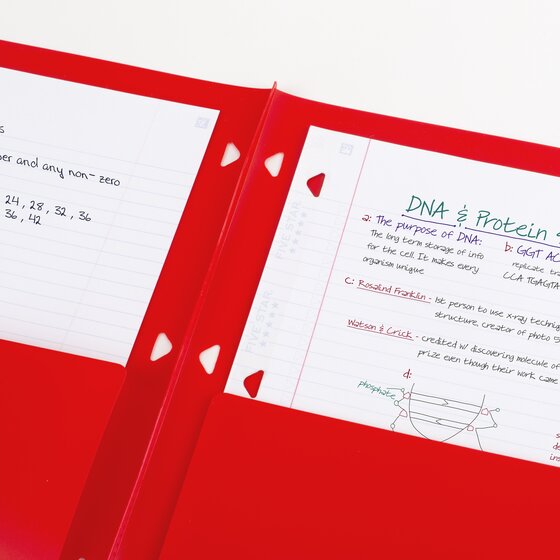 s
and any non-zero
24, 28, 32, 36
36, 42
FIVE STAR
FIVE STAR
DNA & Protein
a: The purpose of DNA:
The long term storage of info
for the cell. It makes every
organism unique
b: GGT AC
replicate tra
CCA TGAGTA
c: Rosalind Franklin - 1st person to use x-ray techniq
structure, creator of photo 5
Watson & Crick - credited w/ discovering molecule of
prize even though their work came
d:
phosphate
s
de
ins